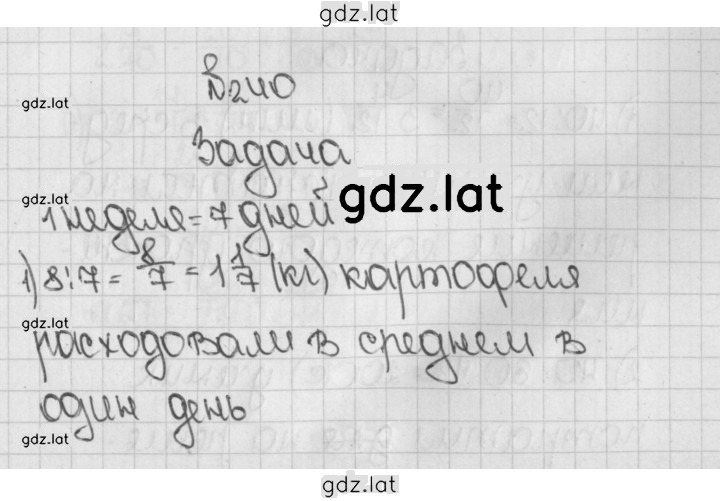 gdz.lat
№240
gdz.lat
Задача
gdz.lat
1 неделя = 7 дней
gdz.lat
1) 8:7 = 8/7 = 1 1/7 (кг) картофеля
gdz.lat
расходовали в среднем в
один день
gdz.lat
gdz.lat